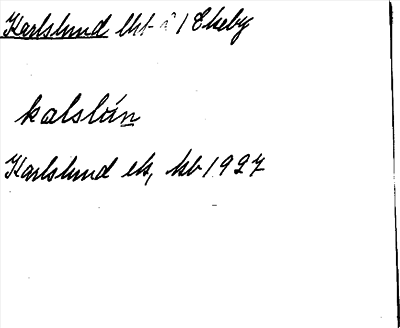 Karlslund lht å 1 Ekeby
kalslún
Karlslund ek, kb 1927